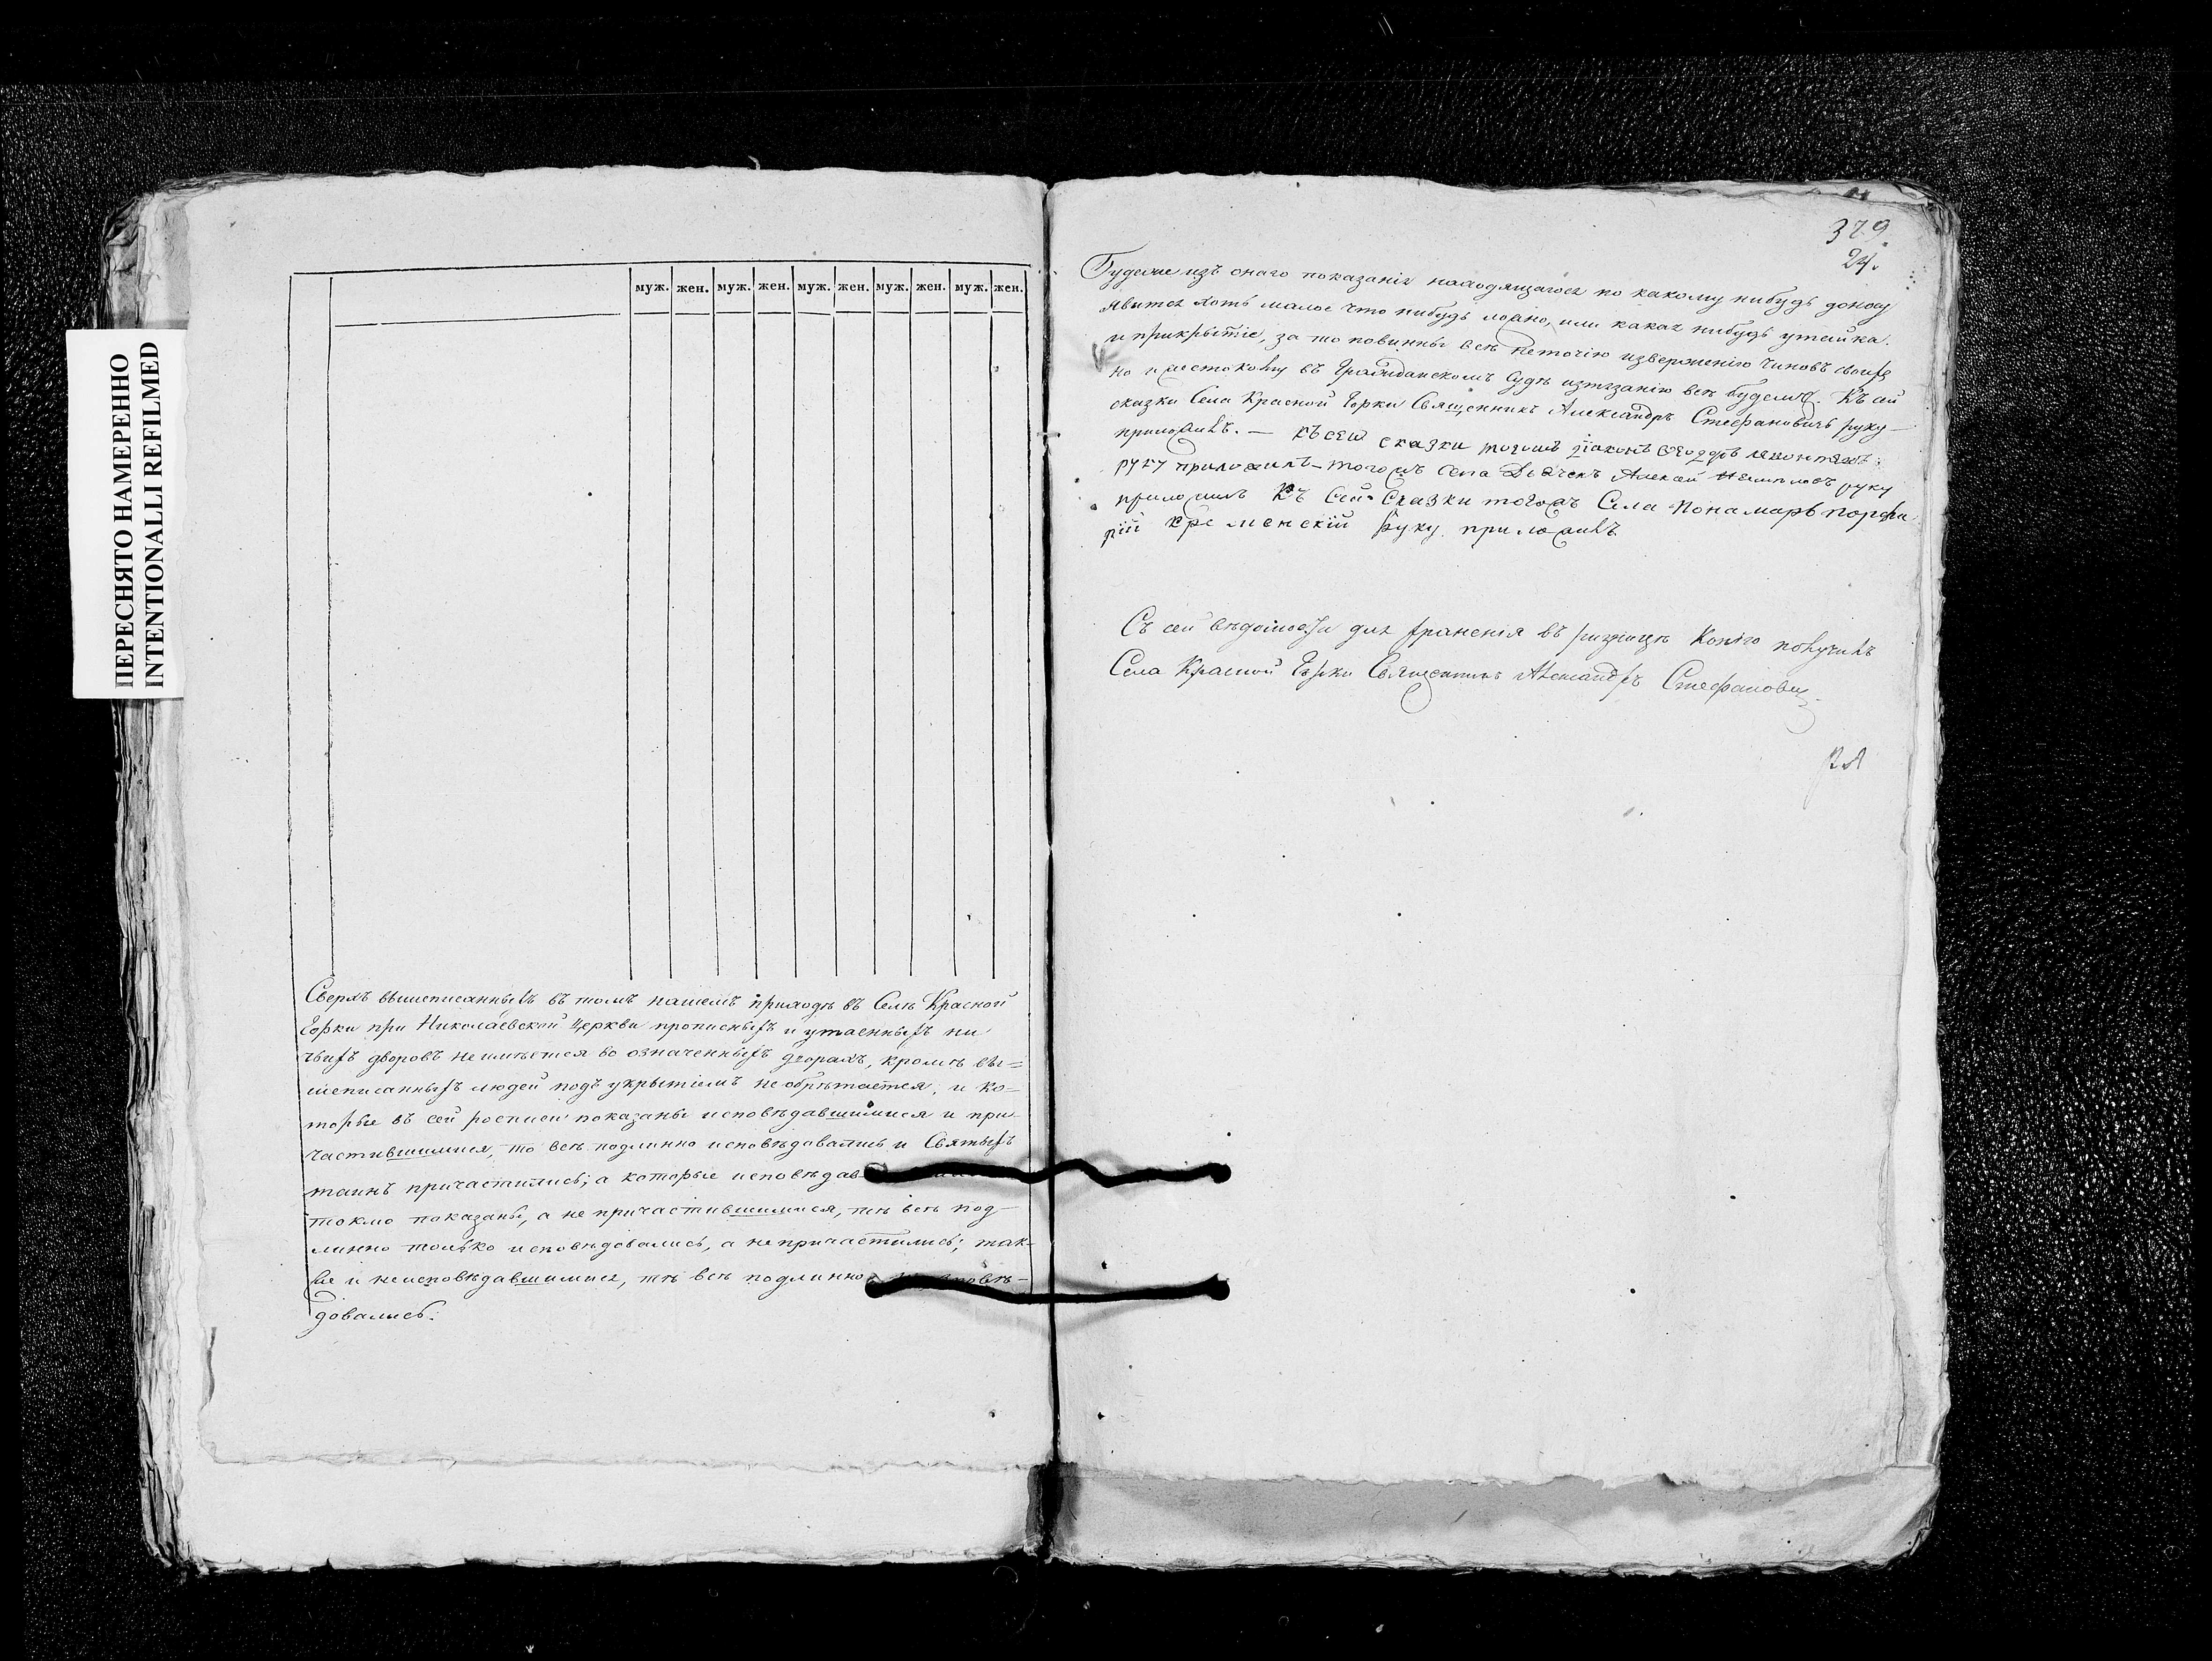 ПЕРЕСНЯТО НАМЕРЕННО
INTENTIONALLI REFILMED
муж. жен. муж. жен. муж. жен. муж. жен. муж. жен.
Сверхъ вышеписанныхъ въ томъ нашемъ приходѣ въ Селѣ Красной
Горки при Николаевской Церкви прописныхъ и утаенныхъ ни
чьихъ дворовъ неимѣется во означенныхъ дворахъ, кромѣ вы=
шеписанныхъ людей подъ укрытіемъ необрѣтается, и ко=
торые въ сей росписи показаны исповѣдавшимися и при
частившимися, то всѣ подлинно исповѣдавались и Святыхъ
таинъ причастились; а которые исповѣдав
токмо показаны, а не причастившимися, тѣ всѣ под-
линно только исповѣдовались, а непричастились; так-
же и неисповѣдавшимися, тѣ всѣ подлинно
довались.
379.
24.
Будеже изъ онаго показанія находящагося по какому нибудь доносу
явится хоть малое что нибудь ложно, или какая нибудь утайка
и прикрытіе, за то повинны всѣ неточію изверженію чиновъ своихъ
но и жестокому въ Гражданскомъ Судѣ изтязанію всѣ будемъ. Къ сей
сказки Села Красной Горки Священникъ Александръ Стефановичь руку-
приложилъ. — Къ сеи сказки тогожъ діаконъ Ѳеодоръ
руку приложилъ – тогожъ Села Дьячекъ Алексѣй руку
приложилъ Къ Сей Сказки тогожъ Села Пономарь Порфи
рій Кременскій Руку приложилъ
Съ сей вѣдомости для храненія въ ризницѣ Копію получилъ
Села Красной Горки Священникъ Александръ Стефанович